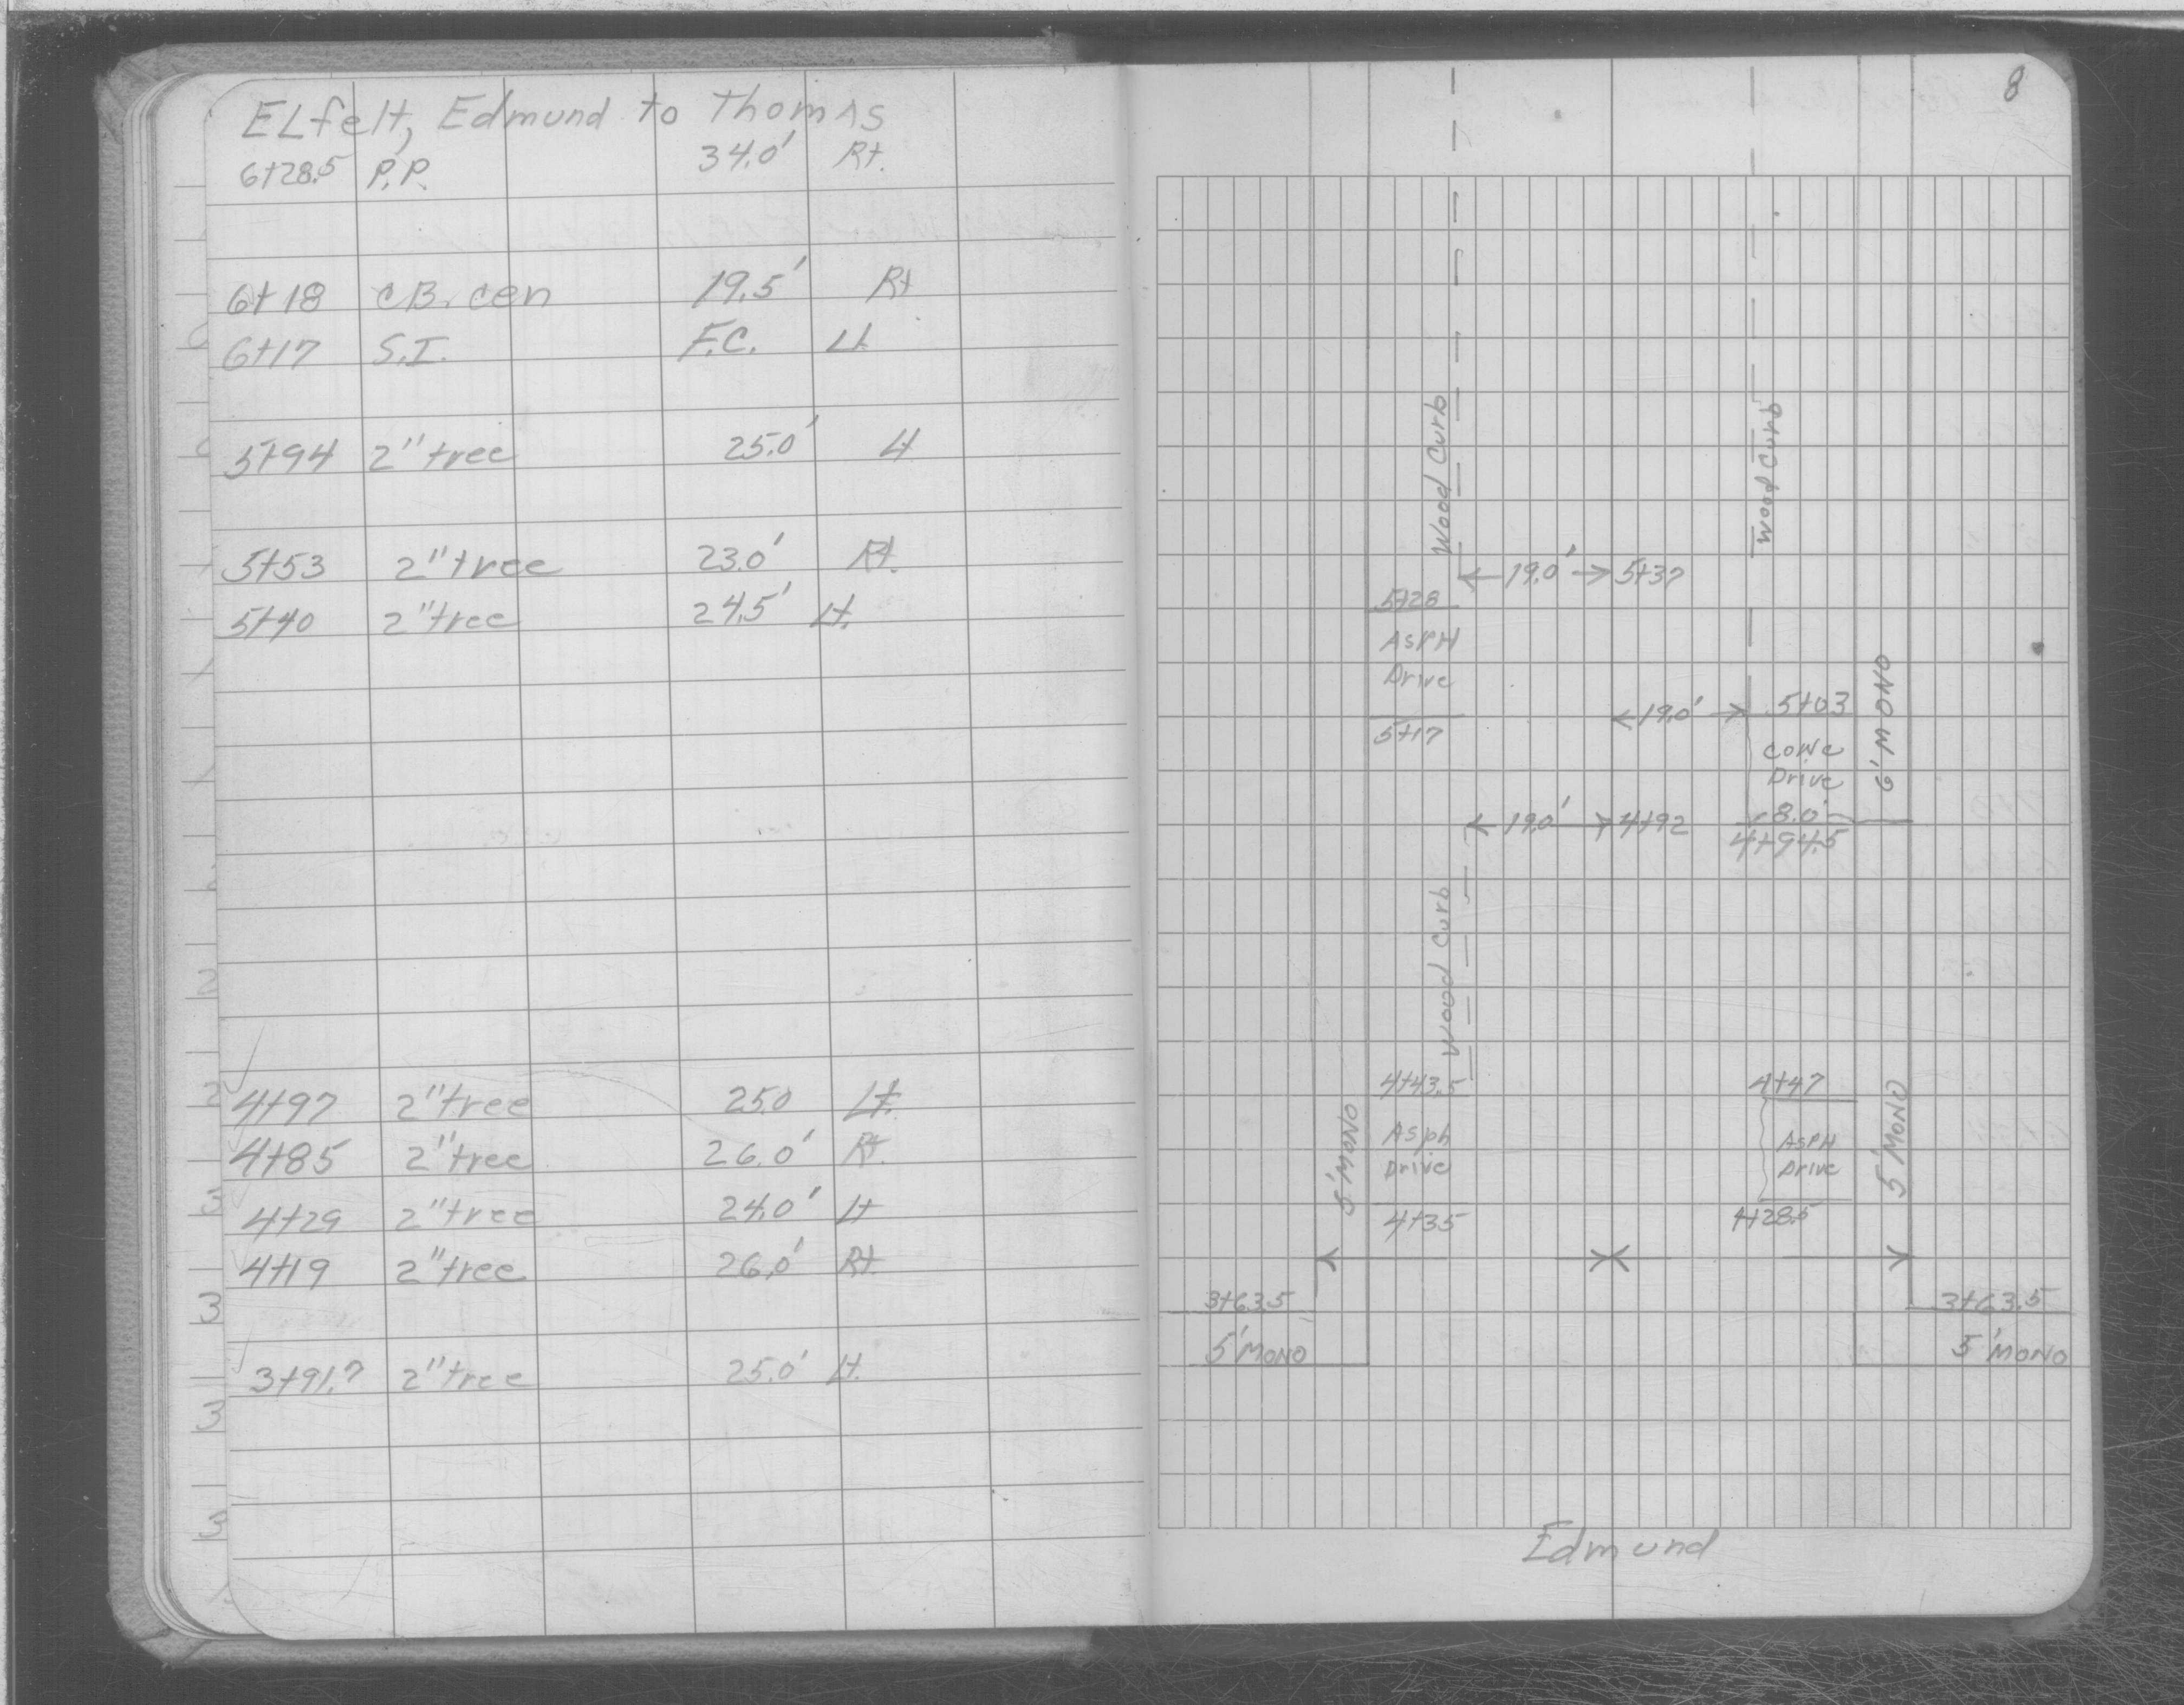 ELfelt, Edmund to Thomas
6+28.5 P.P. 34.0' Rt.
6+18 C.B. cen 19.5' Rt
6+17 S.I. F.C. Lt
5+94 2" tree 25.0' Lt
5+53 2" tree 23.0' Rt.
5+40 2" tree 24.5' Lt.
4+97 2" tree 25.0 Lt.
4+85 2" tree 26.0' Rt.
4+29 2" tree 24.0' Lt
4+19 2" tree 26.0' Rt.
3+91.7 2" tree 25.0' Lt.
8
Wood Curb
Wood Curb
19.0' 5+37
5+28
ASPH
Drive
5+17
19.0' 5+03
conc
Drive
8.0
4+94.5
6' MONO
19.0' 4+92
Wood Curb
4+43.5
Asph
Drive
4+35
5' MONO
4+47
ASPH
Drive
4+28.5
5' MONO
3+63.5
5' MONO
3+63.5
5' MONO
Edmund